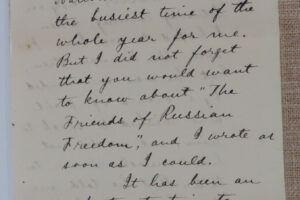 the busiest time of the
whole year for me.
But I did not forget
that you would want
to know about "The
Friends of Russian
Freedom", and I wrote as
soon as I could.
It has been an